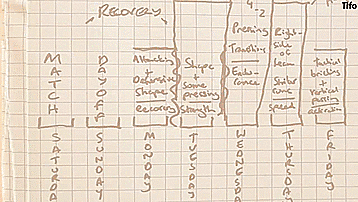 Tifo
4-2
RECOVERY
MATCH
DAY OFF
Attacking
+
Defensive
Shape
recovery
Shape
+
some
pressing
Strength
Pressing
Transition
Endu-
rance
Right-
side of
team
Striker
runs
speed
Tactical
briefing
+
vertical
passing
activation
SATURDAY
SUNDAY
MONDAY
TUESDAY
WEDNESDAY
THURSDAY
FRIDAY